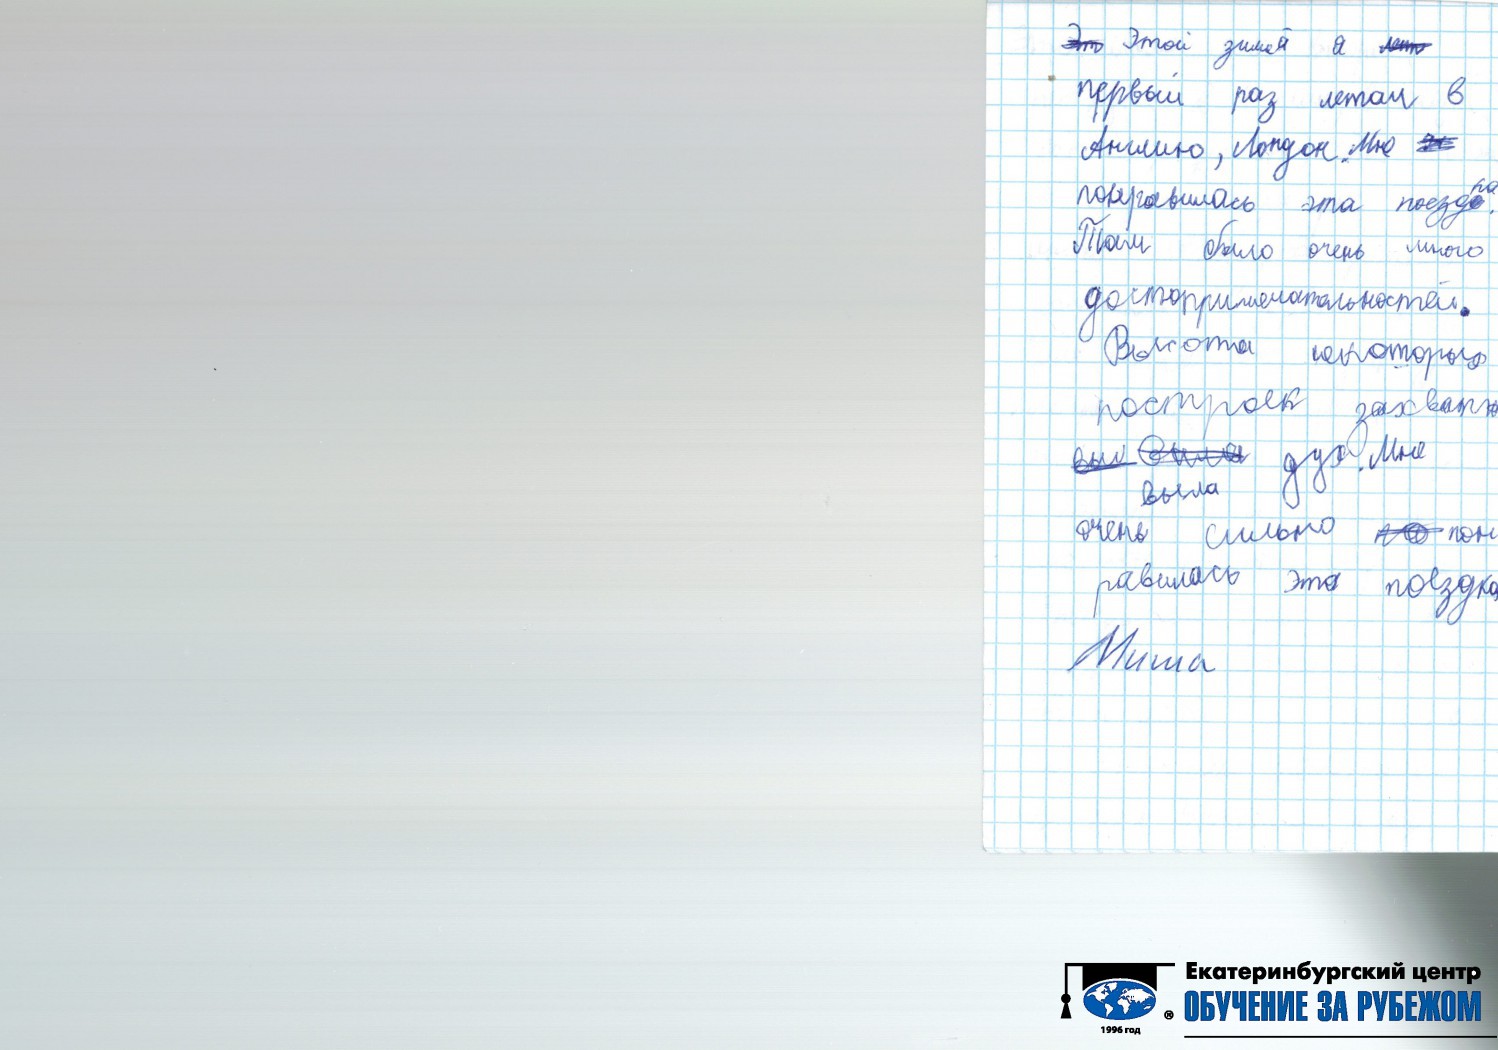 Этой зимой я
первый раз летал в
Англию, Лондон. Мне
понравилась эта поездка.
Там было очень много
достопримечательностей.
Высота некоторых
построек захваты
вала дух. Мне
очень сильно пон
равилась эта поездка
Миша
Екатеринбургский центр
ОБУЧЕНИЕ ЗА РУБЕЖОМ
®
1996 год